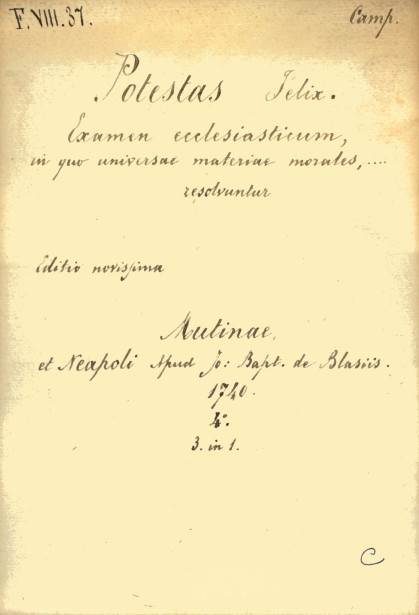 F.VIII.37.
Camp.
Potestas Felix.
Examen ecclesiasticum,
in quo universae materiae morales,....
resolvuntur
Editio novissima
Mutinae,
et Neapoli Apud Jo: Bapt. de Blasiis.
1740.
4°.
3. in 1.
C